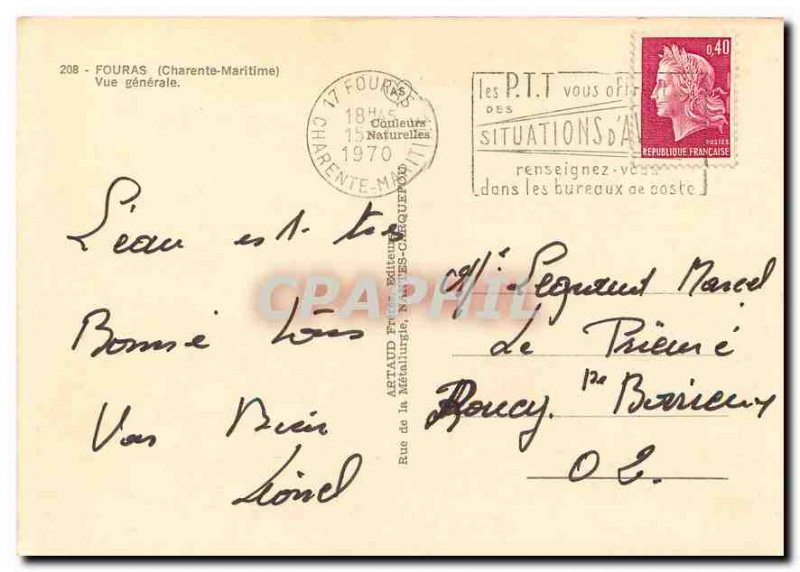 208 - FOURAS (Charente-Maritime)
Vue générale.
17 FOURAS
18H45
15
1970
CHARENTE-MARITIME
AS
Couleurs
Naturelles
les P.T.T vous off
DES
SITUATIONS D'A
renseignez-vous
dans les bureaux de poste
0,40
POSTES
REPUBLIQUE FRANÇAISE
L'eau est très
Bonne tous
Vas Bien
Lionel
ARTAUD Frères, Editeurs
Rue de la Métallurgie, NANTES-CARQUEFOU
CPAPHIL
Legrand Marcel
Le Prieuré
Roucy
02.